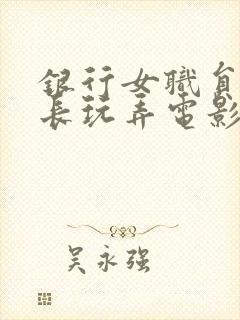 銀行女職員
長玩弄電影
吴永强